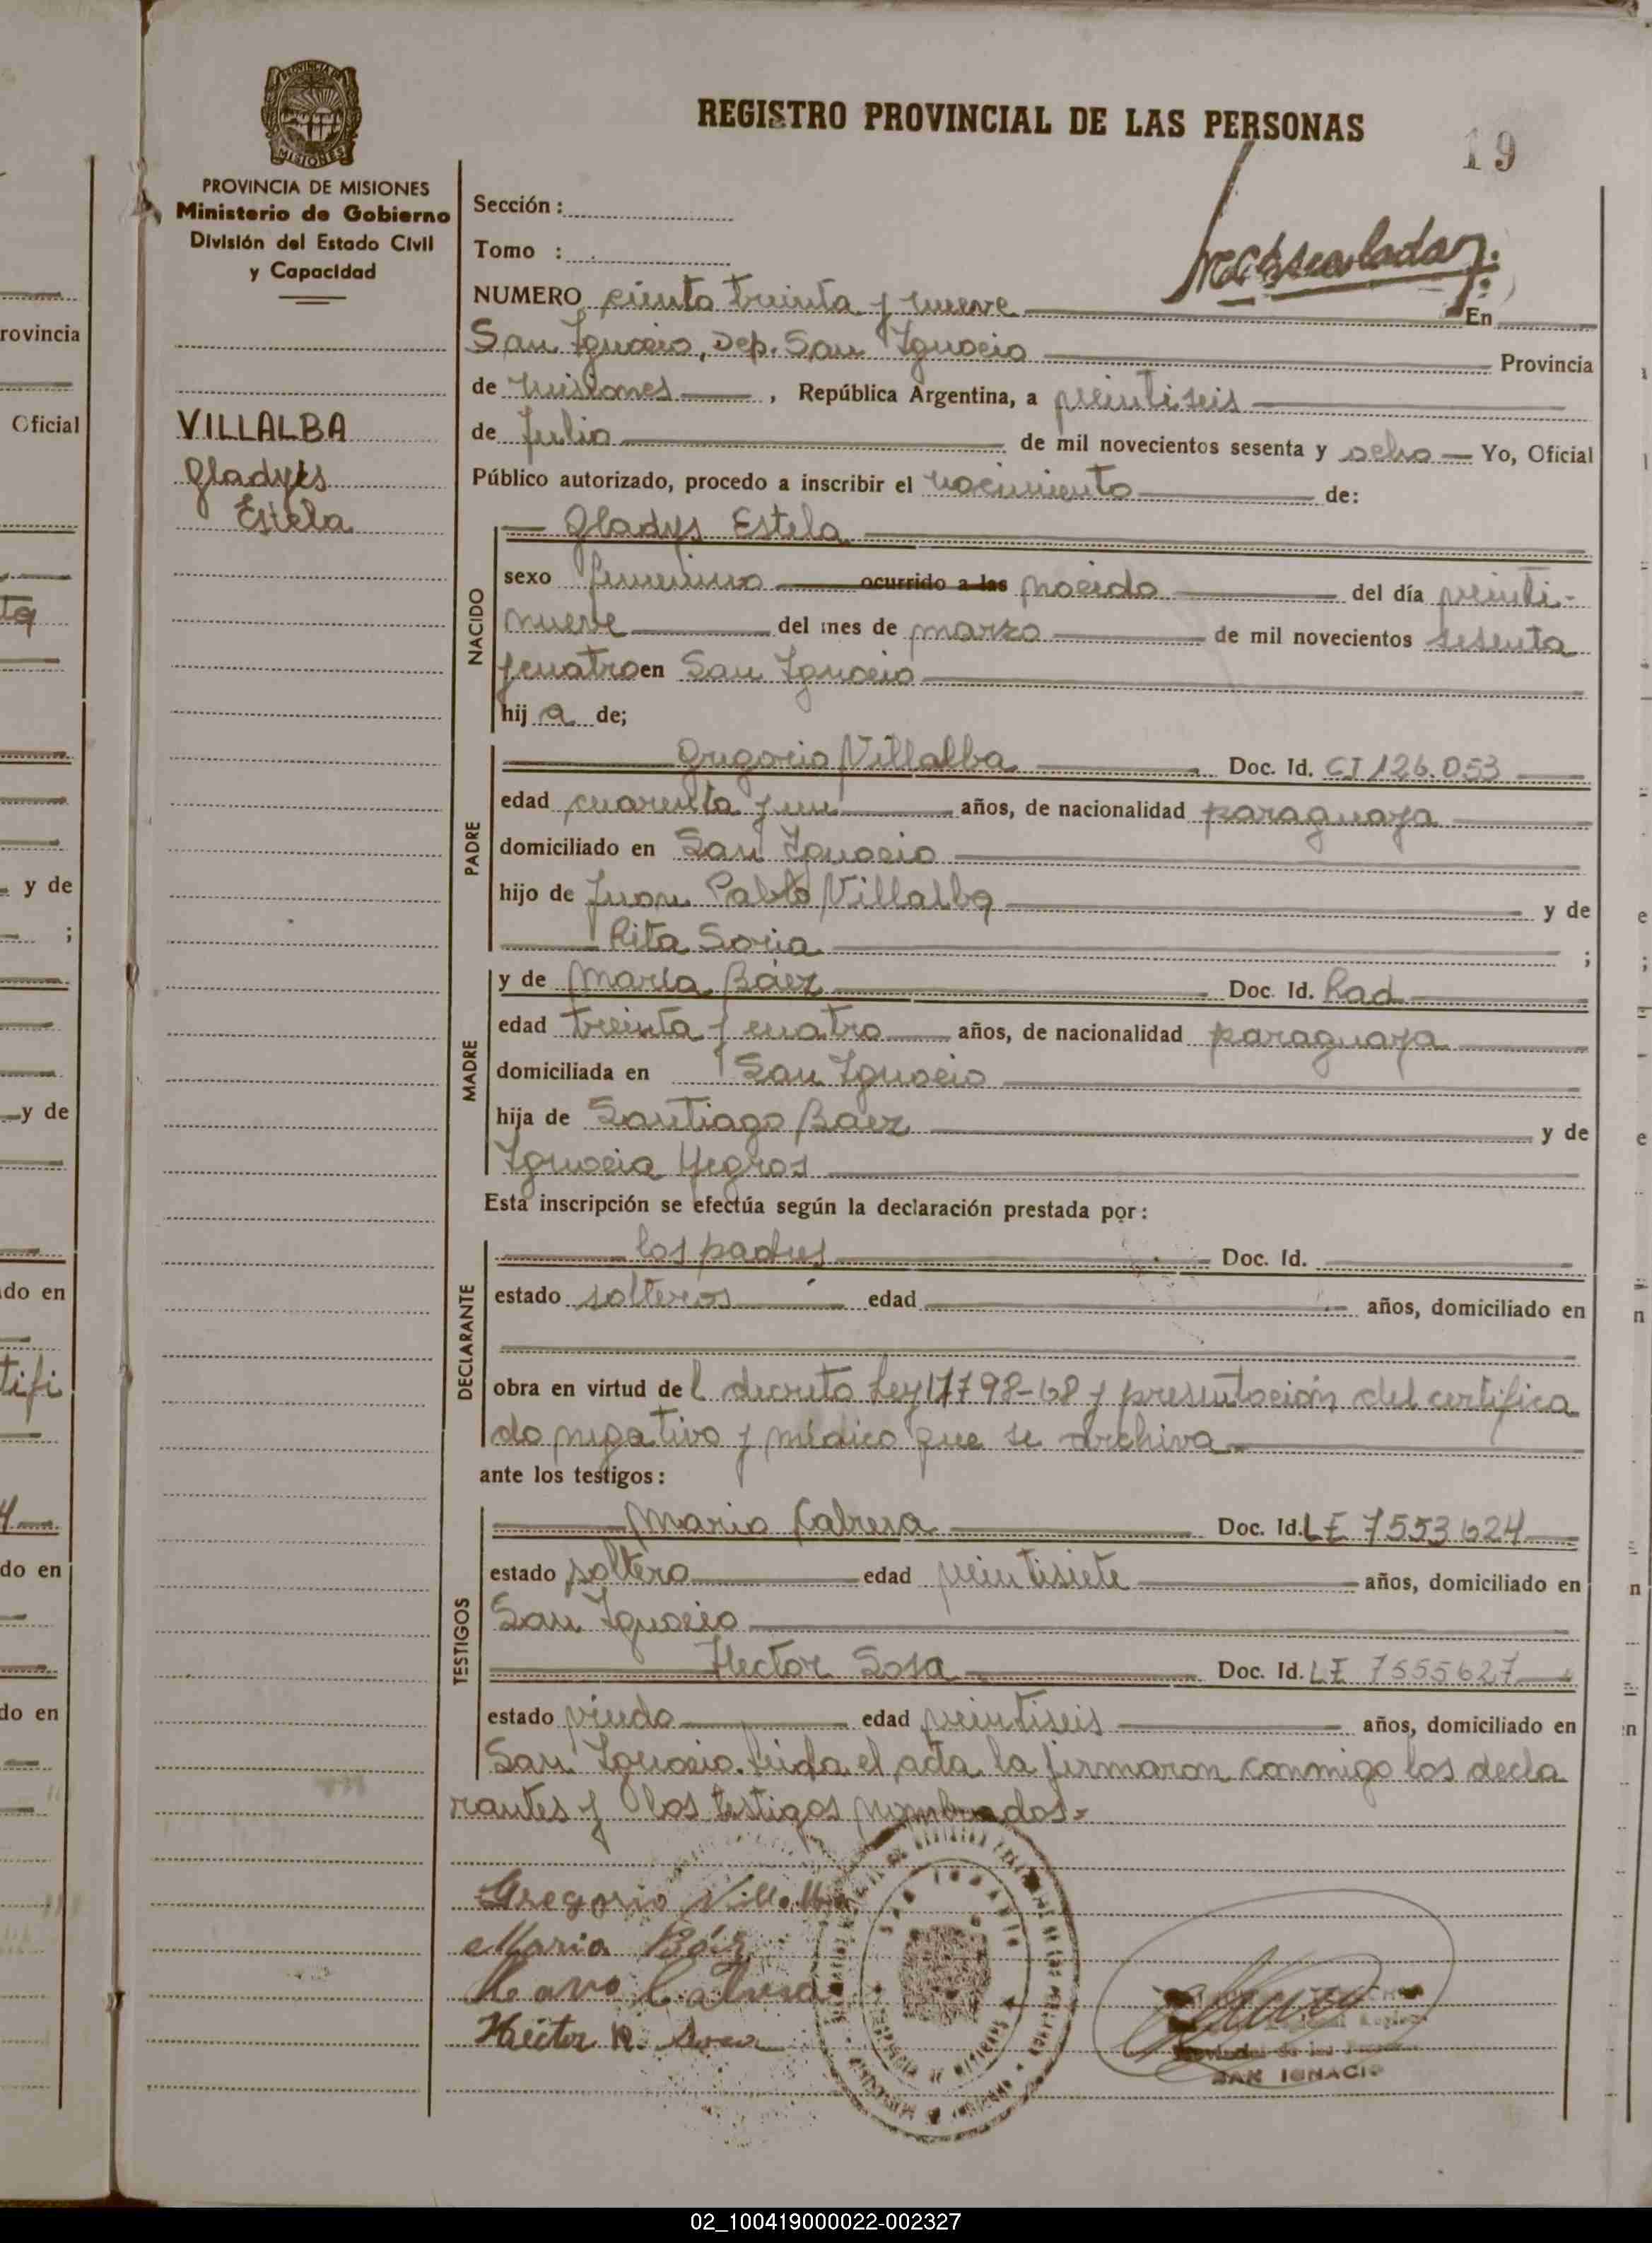 REGISTRO PROVINCIAL DE LAS PERSONAS
19
PROVINCIA DE MISIONES
Ministerio de Gobierno
División del Estado Civil
y Capacidad
Sección :
Tomo :
NUMERO ciento treinta y nueve
En
San Ignacio, Dep. San Ignacio Provincia
de Misiones , República Argentina, a veintiseis
de Julio de mil novecientos sesenta y ocho Yo, Oficial
Público autorizado, procedo a inscribir el nacimiento de:
VILLALBA
Gladys
Estela
NACIDO
Gladys Estela
sexo femenino ocurrido a las nacida del día veinti-
nueve del mes de marzo de mil novecientos sesenta
y cuatro en San Ignacio
hij a de;
PADRE
Gregorio Villalba Doc. Id. CI 126.053
edad cuarenta y un años, de nacionalidad paraguaya
domiciliado en San Ignacio
hijo de Juan Pablo Villalba y de
Rita Soria ;
MADRE
y de María Báez Doc. Id. Rad
edad treinta y cuatro años, de nacionalidad paraguaya
domiciliada en San Ignacio
hija de Santiago Báez y de
Ignacia Yegros
Esta inscripción se efectúa según la declaración prestada por:
DECLARANTE
los padres Doc. Id.
estado solteros edad años, domiciliado en
obra en virtud de l decreto Ley 17798-68 y presentación del certifica
do negativo y médico que se archiva
ante los testigos:
TESTIGOS
Mario Cabrera Doc. Id. LE 7553624
estado soltero edad veintisiete años, domiciliado en
San Ignacio
Hector Sosa Doc. Id. LE 7555627
estado viudo edad veintiseis años, domiciliado en
San Ignacio. Leida el acta la firmaron conmigo los decla
rantes y los testigos nombrados=
Gregorio Villalba
Maria Báez
Mario Cabrera
Héctor R. Sosa
SAN IGNACIO
02_100419000022-002327